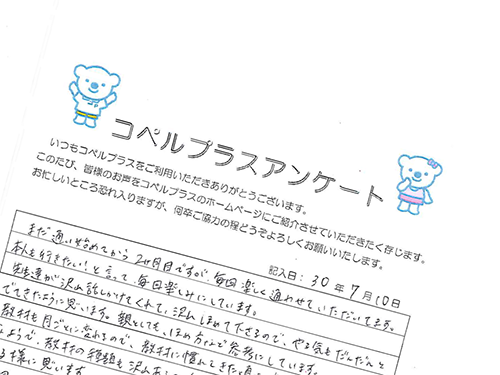 コペルプラスアンケート
いつもコペルプラスをご利用いただきありがとうございます。
このたび、皆様のお声をコペルプラスのホームページにご紹介させていただきたく存じます。
お忙しいところ恐れ入りますが、何卒ご協力の程どうぞよろしくお願いいたします。
記入日：30年7月10日
まだ通い始めてから2ヶ月目ですが、毎回楽しく通わせていただいてます。
本人も行きたい！と言って毎回楽しみにしています。
先生達が沢山話しかけてくれて、沢山ほめて下さるので、やる気もだんだんと
でてきたように思います。親としても、ほめ方など参考にしています。
教材も月ごとに変わるので、教材に慣れてきたと
ようで、教材の種類も沢山
る様に思います。